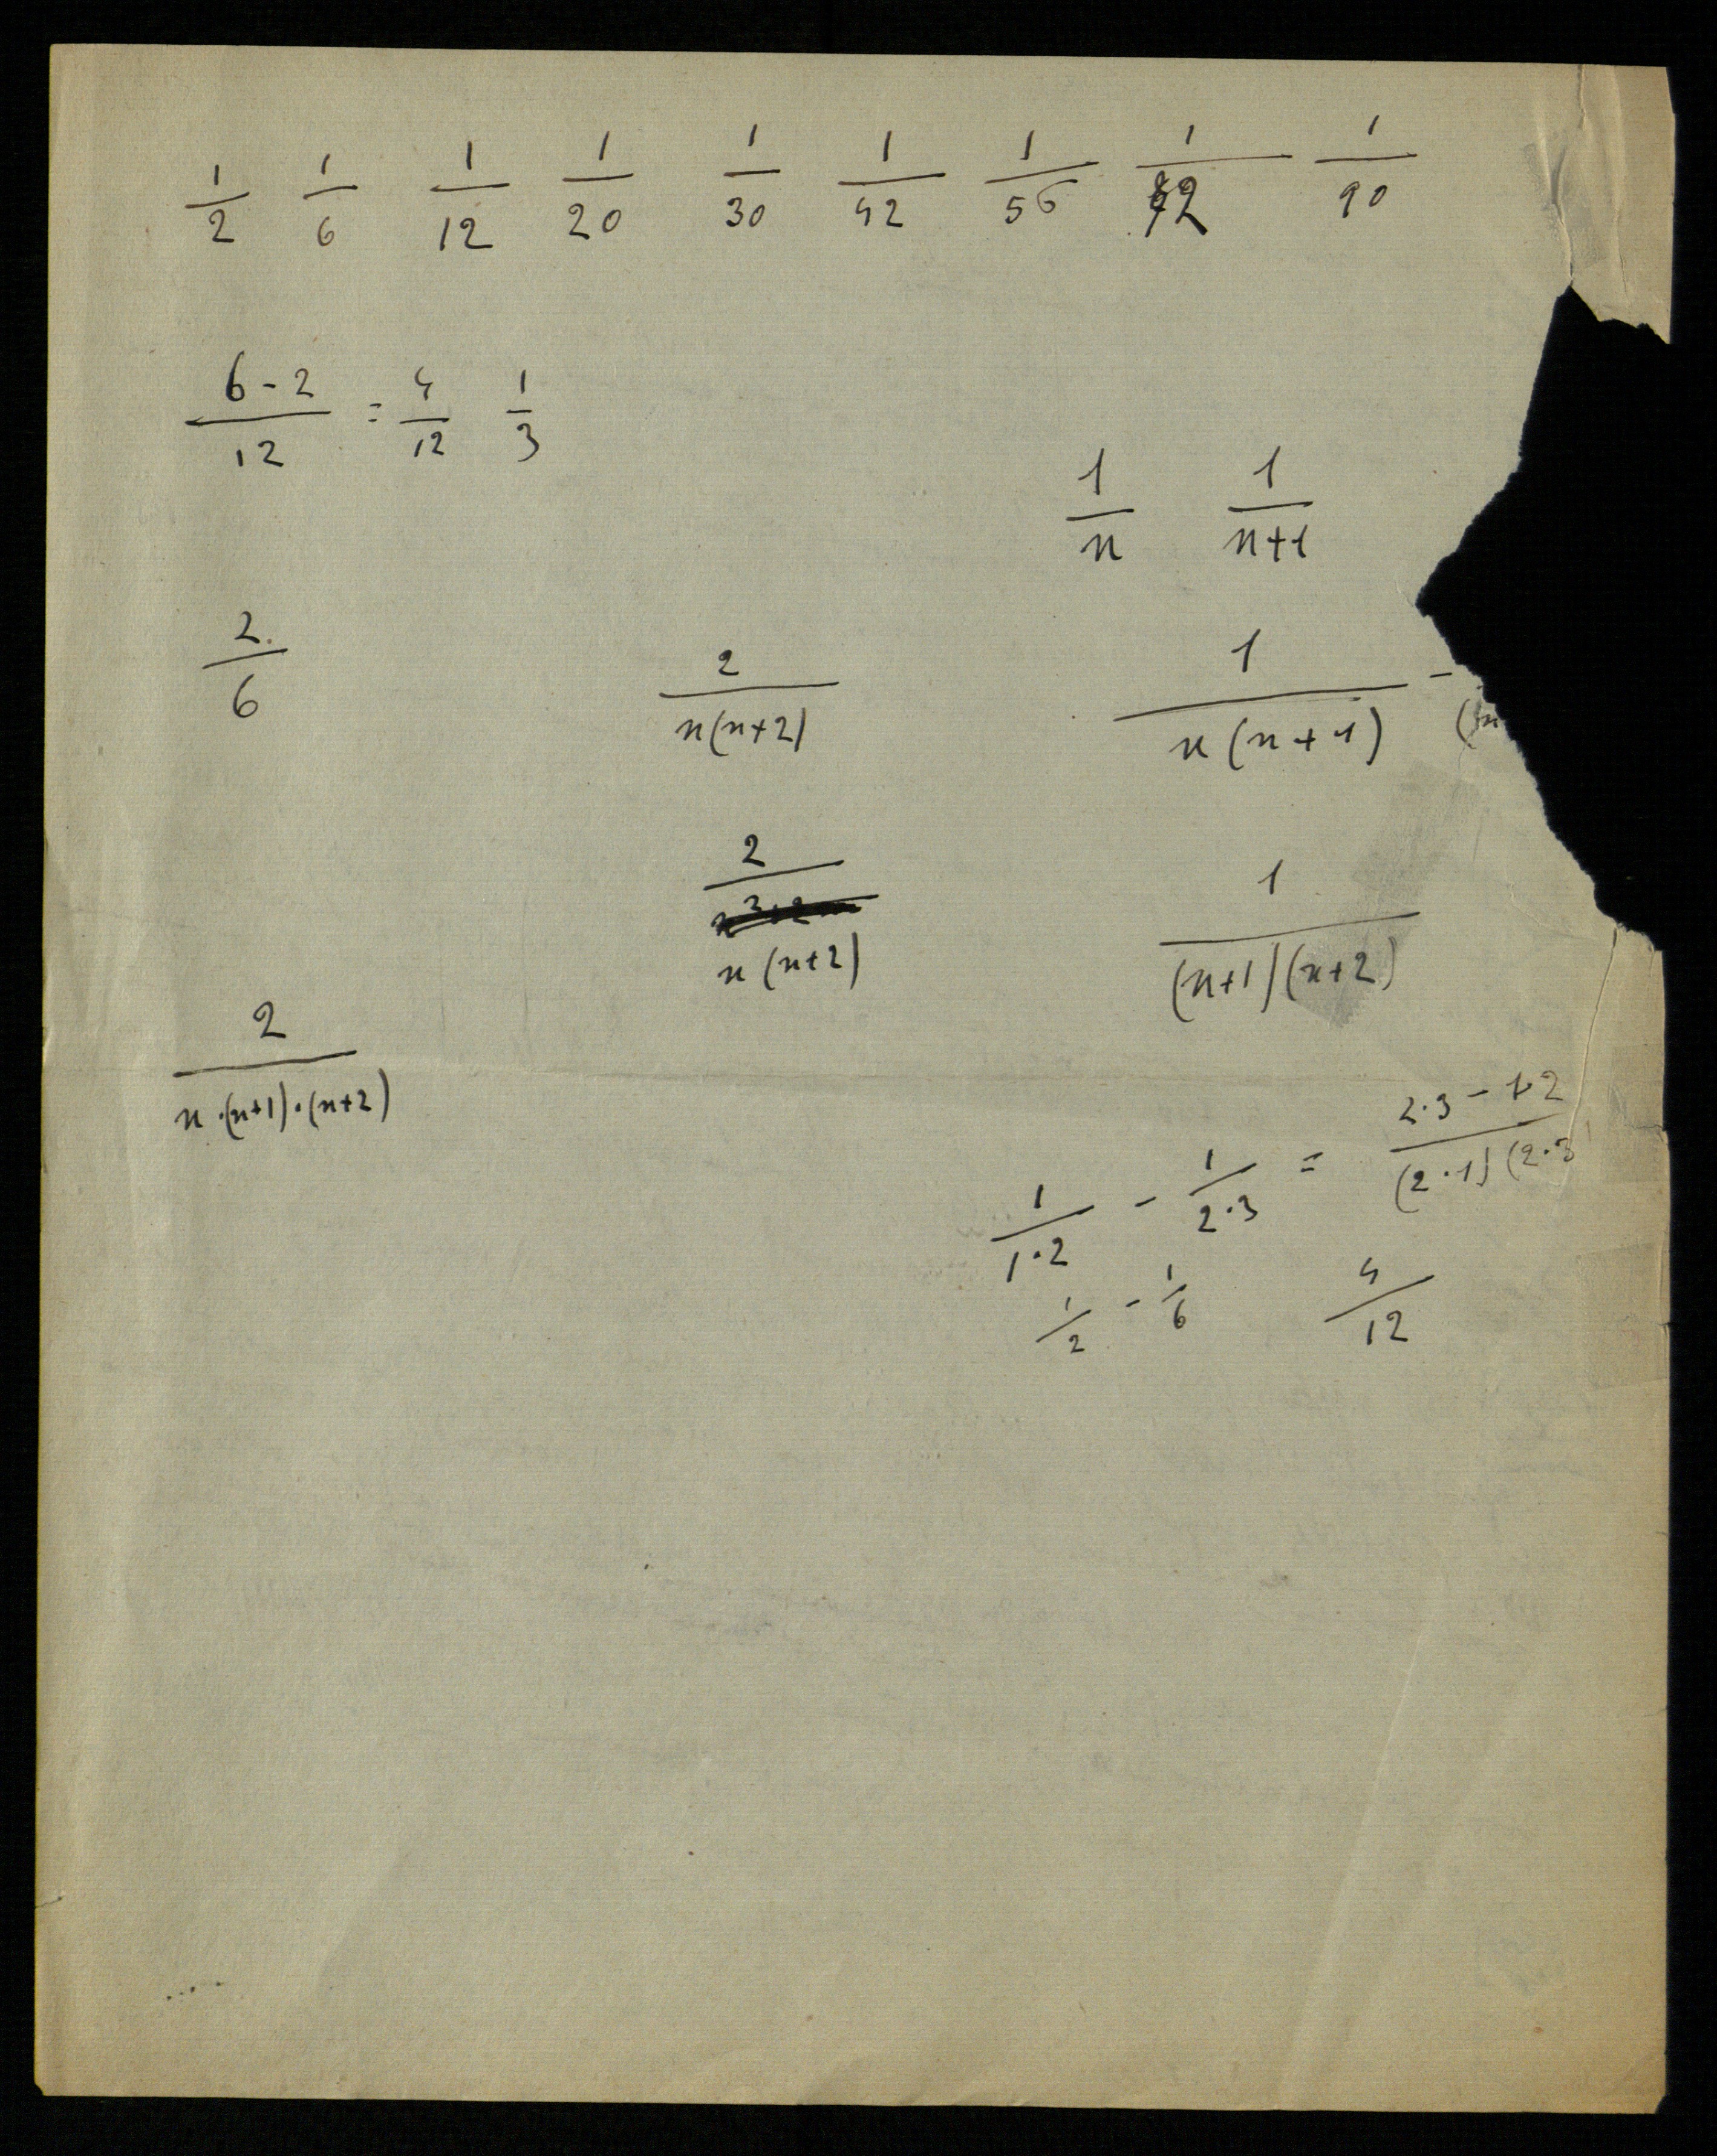 1/2 1/6 1/12 1/20 1/30 1/42 1/56 1/72 1/90
(6-2)/12 = 4/12 1/3
1/n 1/(n+1)
2/6 2/(n(n+2)) 1/(n(n+1)) -
2/(n(n+2)) 1/((n+1)(n+2))
2/(n·(n+1)·(n+2))
1/(1·2) - 1/(2·3) = (2·3-1·2)/((2·1)(2·3
1/2 - 1/6 4/12